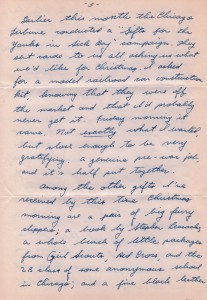 - 5 -
Earlier this month the Chicago
Tribune conducted a "Gifts for the
Yanks in Sick Bay" campaign, they
sent cards to us all asking us what
we'd like for Christmas. I asked
for a model railroad car construction
kit, knowing that they were off
the market and that I'd probably
never get it. Friday morning it
came. Not exactly what I wanted,
but close enough to be very
gratifying. A genuine pre-war job,
and it's half put together.
Among the other gifts I've
received by this time Christmas
morning are a pair of big furry
slippers; a book by Stephen
a whole bunch of little packages
from Girl Scouts, Red Cross, and the
2B class of some anonymous school
in Chicago; and a fine black leather